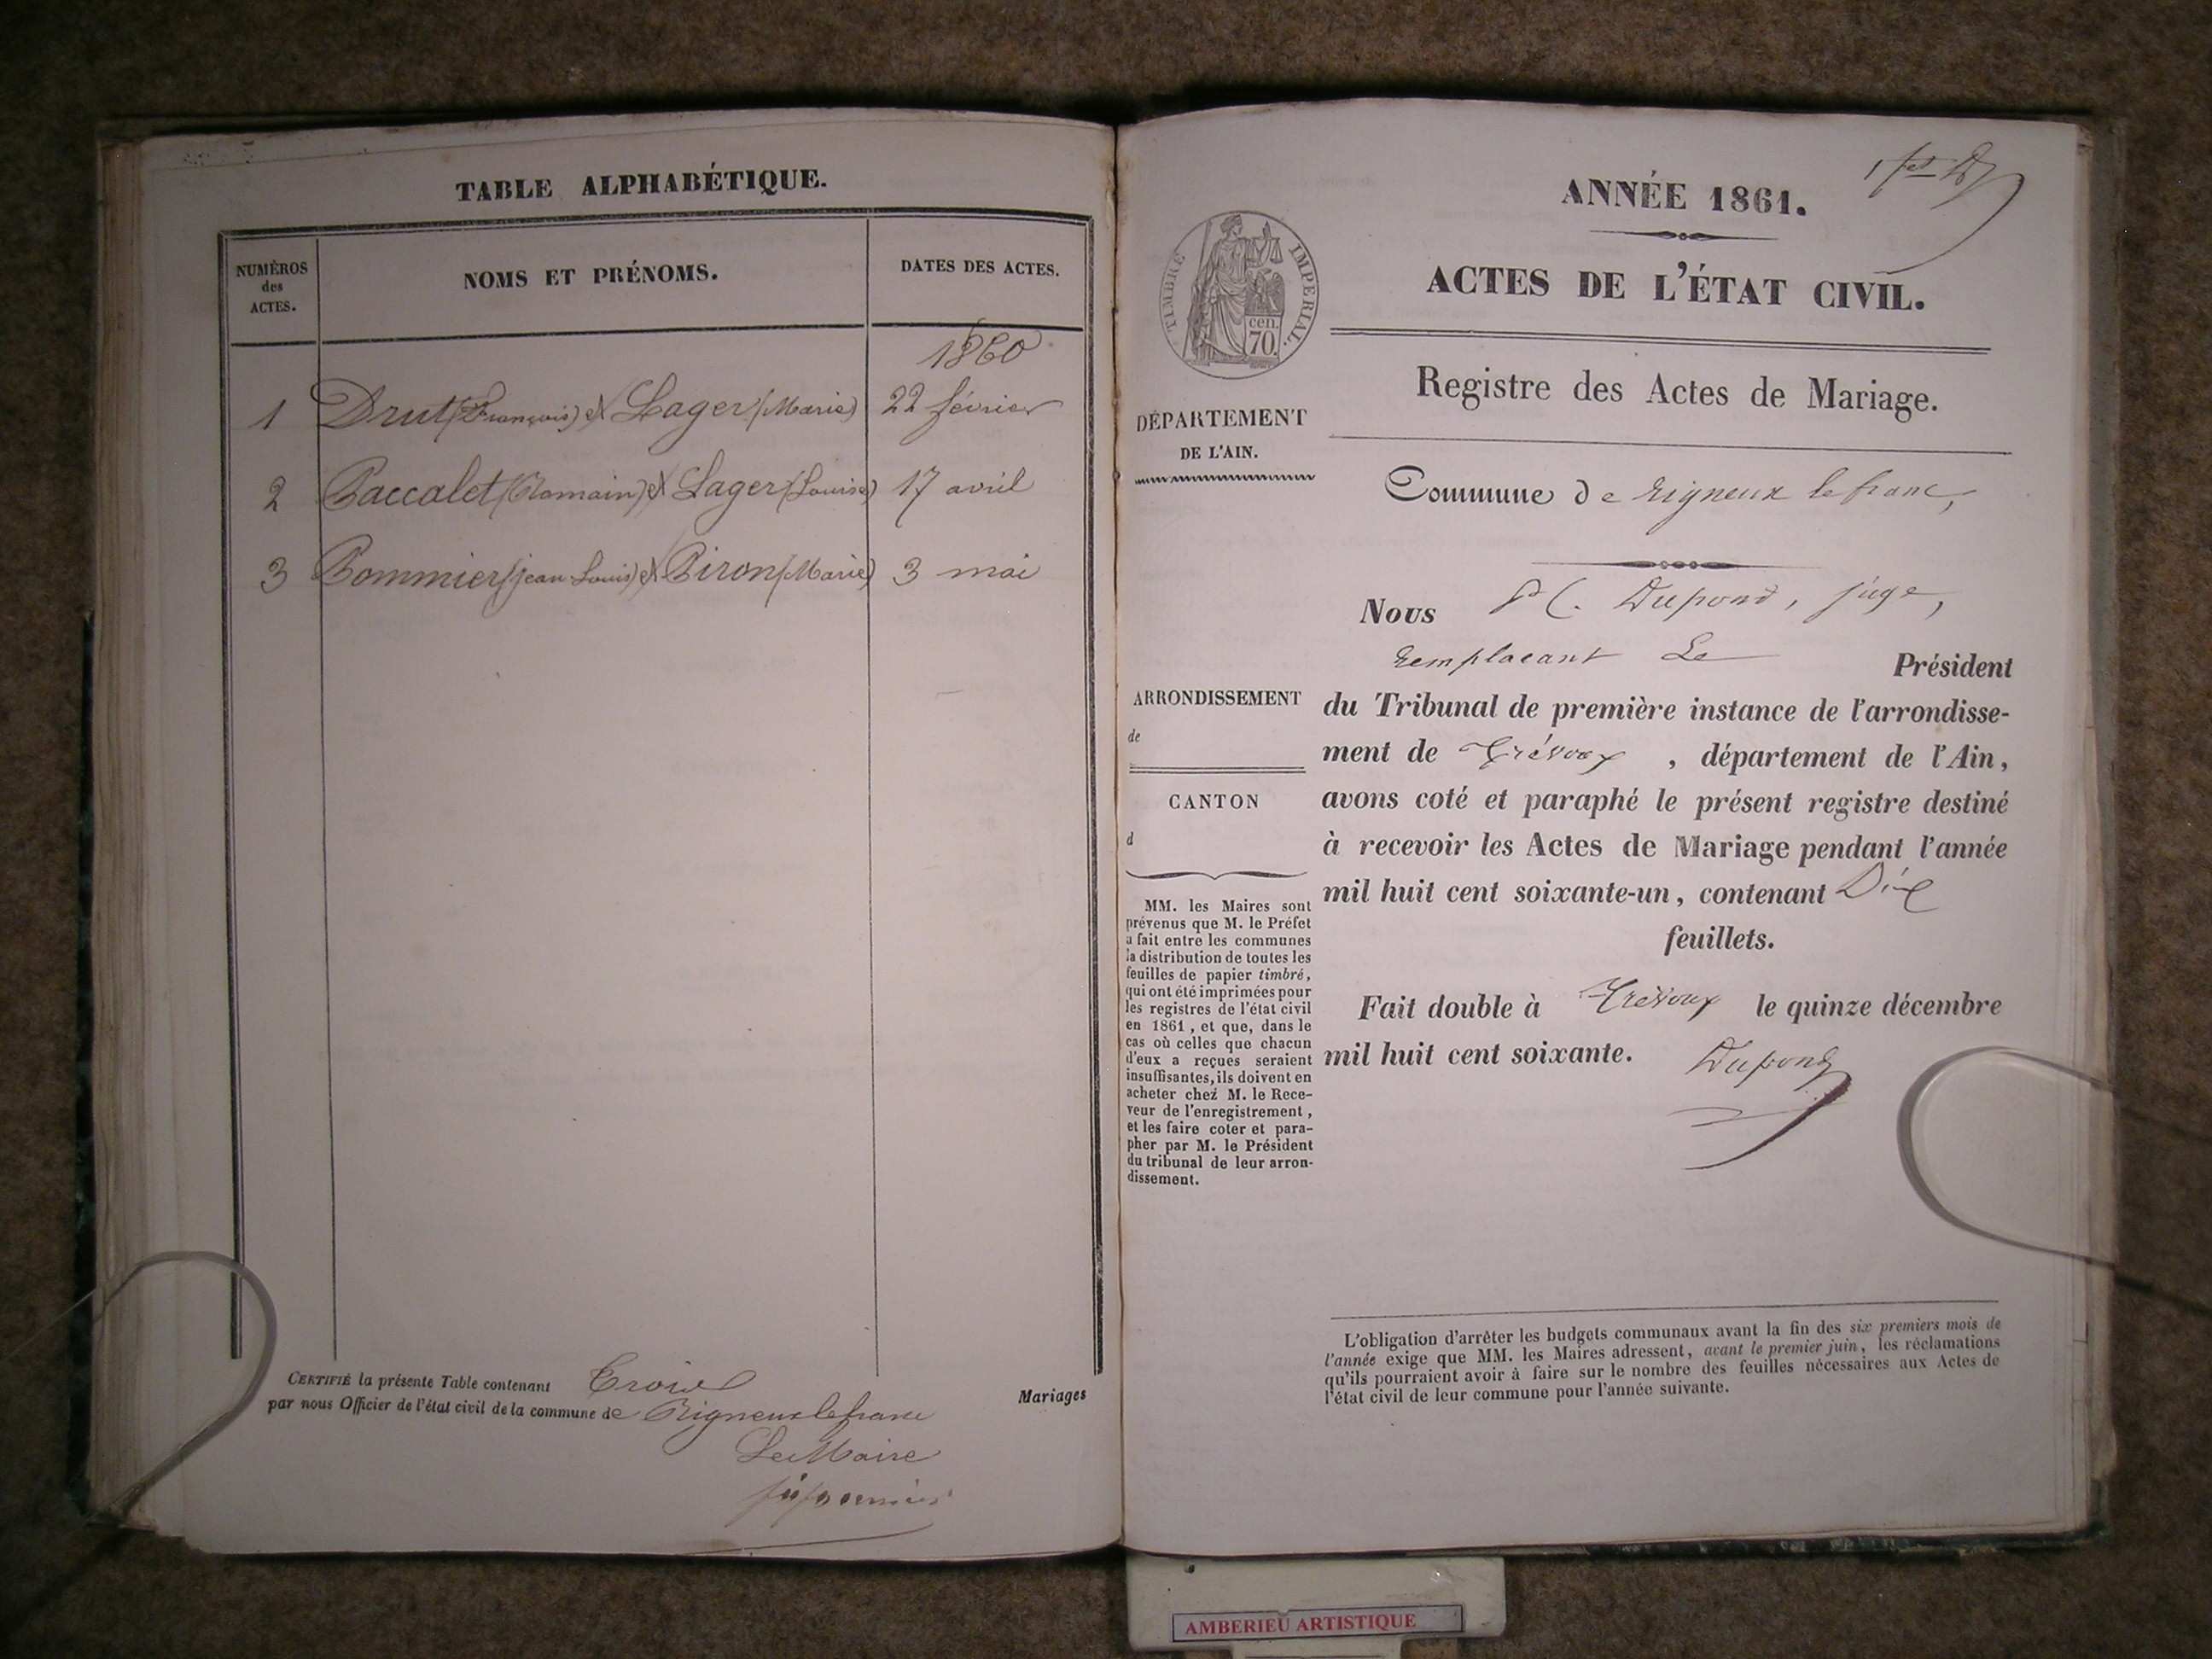 TABLE ALPHABÉTIQUE.
NUMÉROS
des
ACTES.
NOMS ET PRÉNOMS.
DATES DES ACTES.
1860
1 Drut (François) et Lager (Marie) 22 février
2 Baccalet (Romain) et Lager (Louise) 17 avril
3 Bommier (jean Louis) et Biron (Marie) 3 mai
CERTIFIÉ la présente Table contenant Trois Mariages
par nous Officier de l'état civil de la commune de Rigneux le franc
Le Maire
ANNÉE 1861.
ACTES DE L'ÉTAT CIVIL.
TIMBRE IMPÉRIAL.
cen.
70.
Registre des Actes de Mariage.
DÉPARTEMENT
DE L'AIN.
Commune de Rigneux le franc,
Nous Dupond, juge,
remplacant Le Président
du Tribunal de première instance de l'arrondisse-
ment de Trévoux, département de l'Ain,
avons coté et paraphé le présent registre destiné
à recevoir les Actes de Mariage pendant l'année
mil huit cent soixante-un, contenant Dix
feuillets.
Fait double à Trévoux le quinze décembre
mil huit cent soixante.
Dupond
ARRONDISSEMENT
de
CANTON
d
MM. les Maires sont
prévenus que M. le Préfet
a fait entre les communes
la distribution de toutes les
feuilles de papier timbré,
qui ont été imprimées pour
les registres de l'état civil
en 1861, et que, dans le
cas où celles que chacun
d'eux a reçues seraient
insuffisantes, ils doivent en
acheter chez M. le Rece-
veur de l'enregistrement,
et les faire coter et para-
pher par M. le Président
du tribunal de leur arron-
dissement.
L'obligation d'arrêter les budgets communaux avant la fin des six premiers mois de
l'année exige que MM. les Maires adressent, avant le premier juin, les réclamations
qu'ils pourraient avoir à faire sur le nombre des feuilles nécessaires aux Actes de
l'état civil de leur commune pour l'année suivante.
AMBERIEU ARTISTIQUE